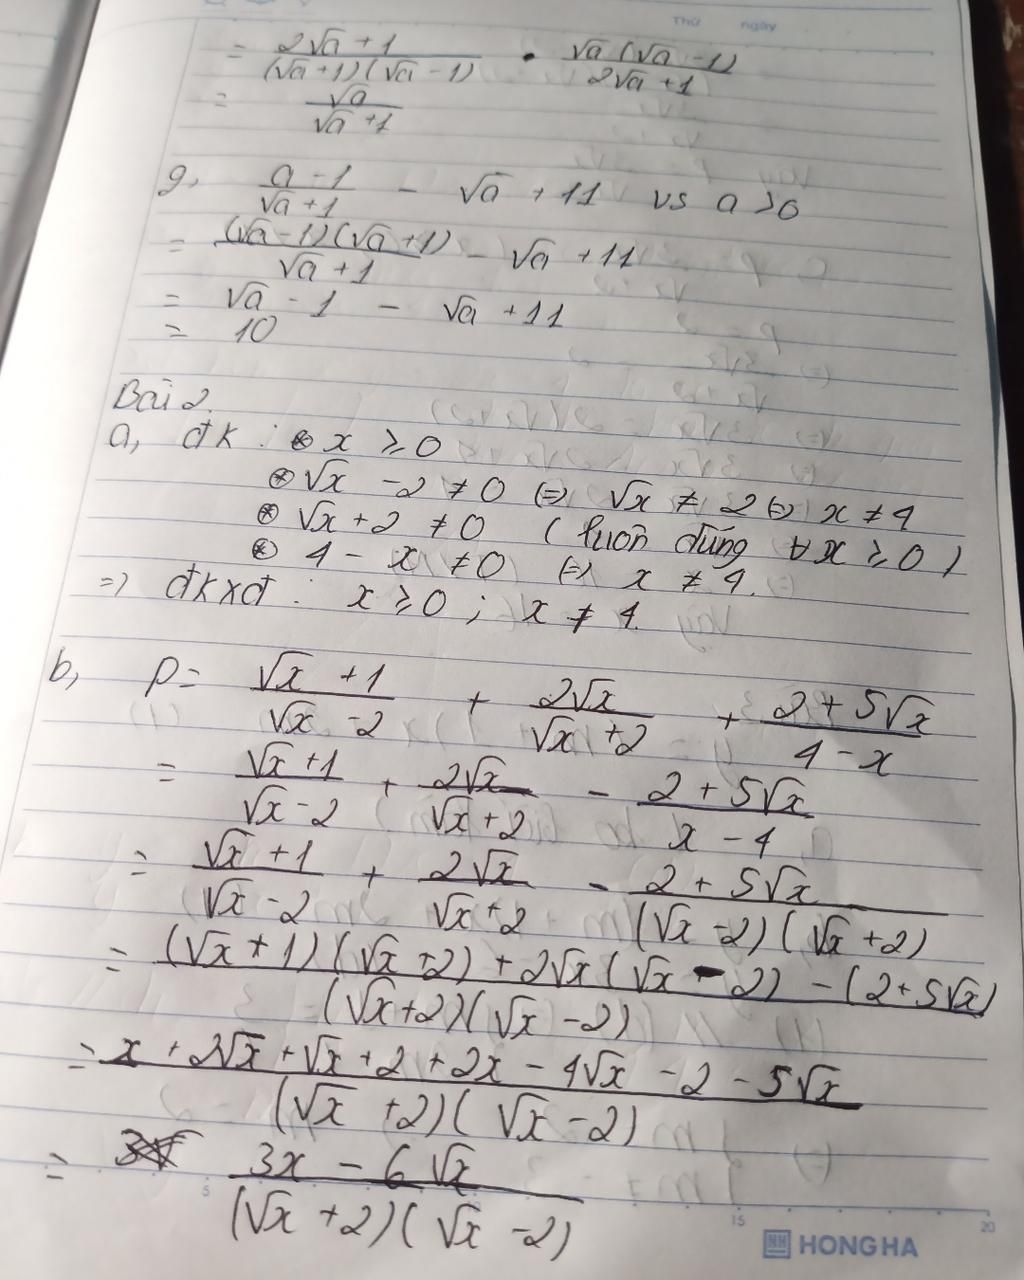 Thứ ngày
= (2√a + 1)/((√a + 1)(√a - 1)) . (√a (√a - 1))/(2√a + 1)
= √a/(√a + 1)
g, (a - 1)/(√a + 1) - √a + 11 vs a ≥ 0
= ((√a - 1)(√a + 1))/(√a + 1) - √a + 11
= √a - 1 - √a + 11
= 10
Bài 2.
a, đk : ⊛ x ≥ 0
⊛ √x - 2 ≠ 0 ⇔ √x ≠ 2 ⇔ x ≠ 4
⊛ √x + 2 ≠ 0 (luôn đúng ∀x ≥ 0)
⊛ 4 - x ≠ 0 ⇔ x ≠ 4.
⇒ đkxđ : x ≥ 0 ; x ≠ 4.
b, P = (√x + 1)/(√x - 2) + (2√x)/(√x + 2) + (2 + 5√x)/(4 - x)
= (√x + 1)/(√x - 2) + (2√x)/(√x + 2) - (2 + 5√x)/(x - 4)
= (√x + 1)/(√x - 2) + (2√x)/(√x + 2) - (2 + 5√x)/((√x - 2)(√x + 2))
= ((√x + 1)(√x + 2) + 2√x(√x - 2) - (2 + 5√x))/((√x + 2)(√x - 2))
= (x + 2√x + √x + 2 + 2x - 4√x - 2 - 5√x)/((√x + 2)(√x - 2))
= (3x - 6√x)/((√x + 2)(√x - 2))
5 15 20
HONG HA